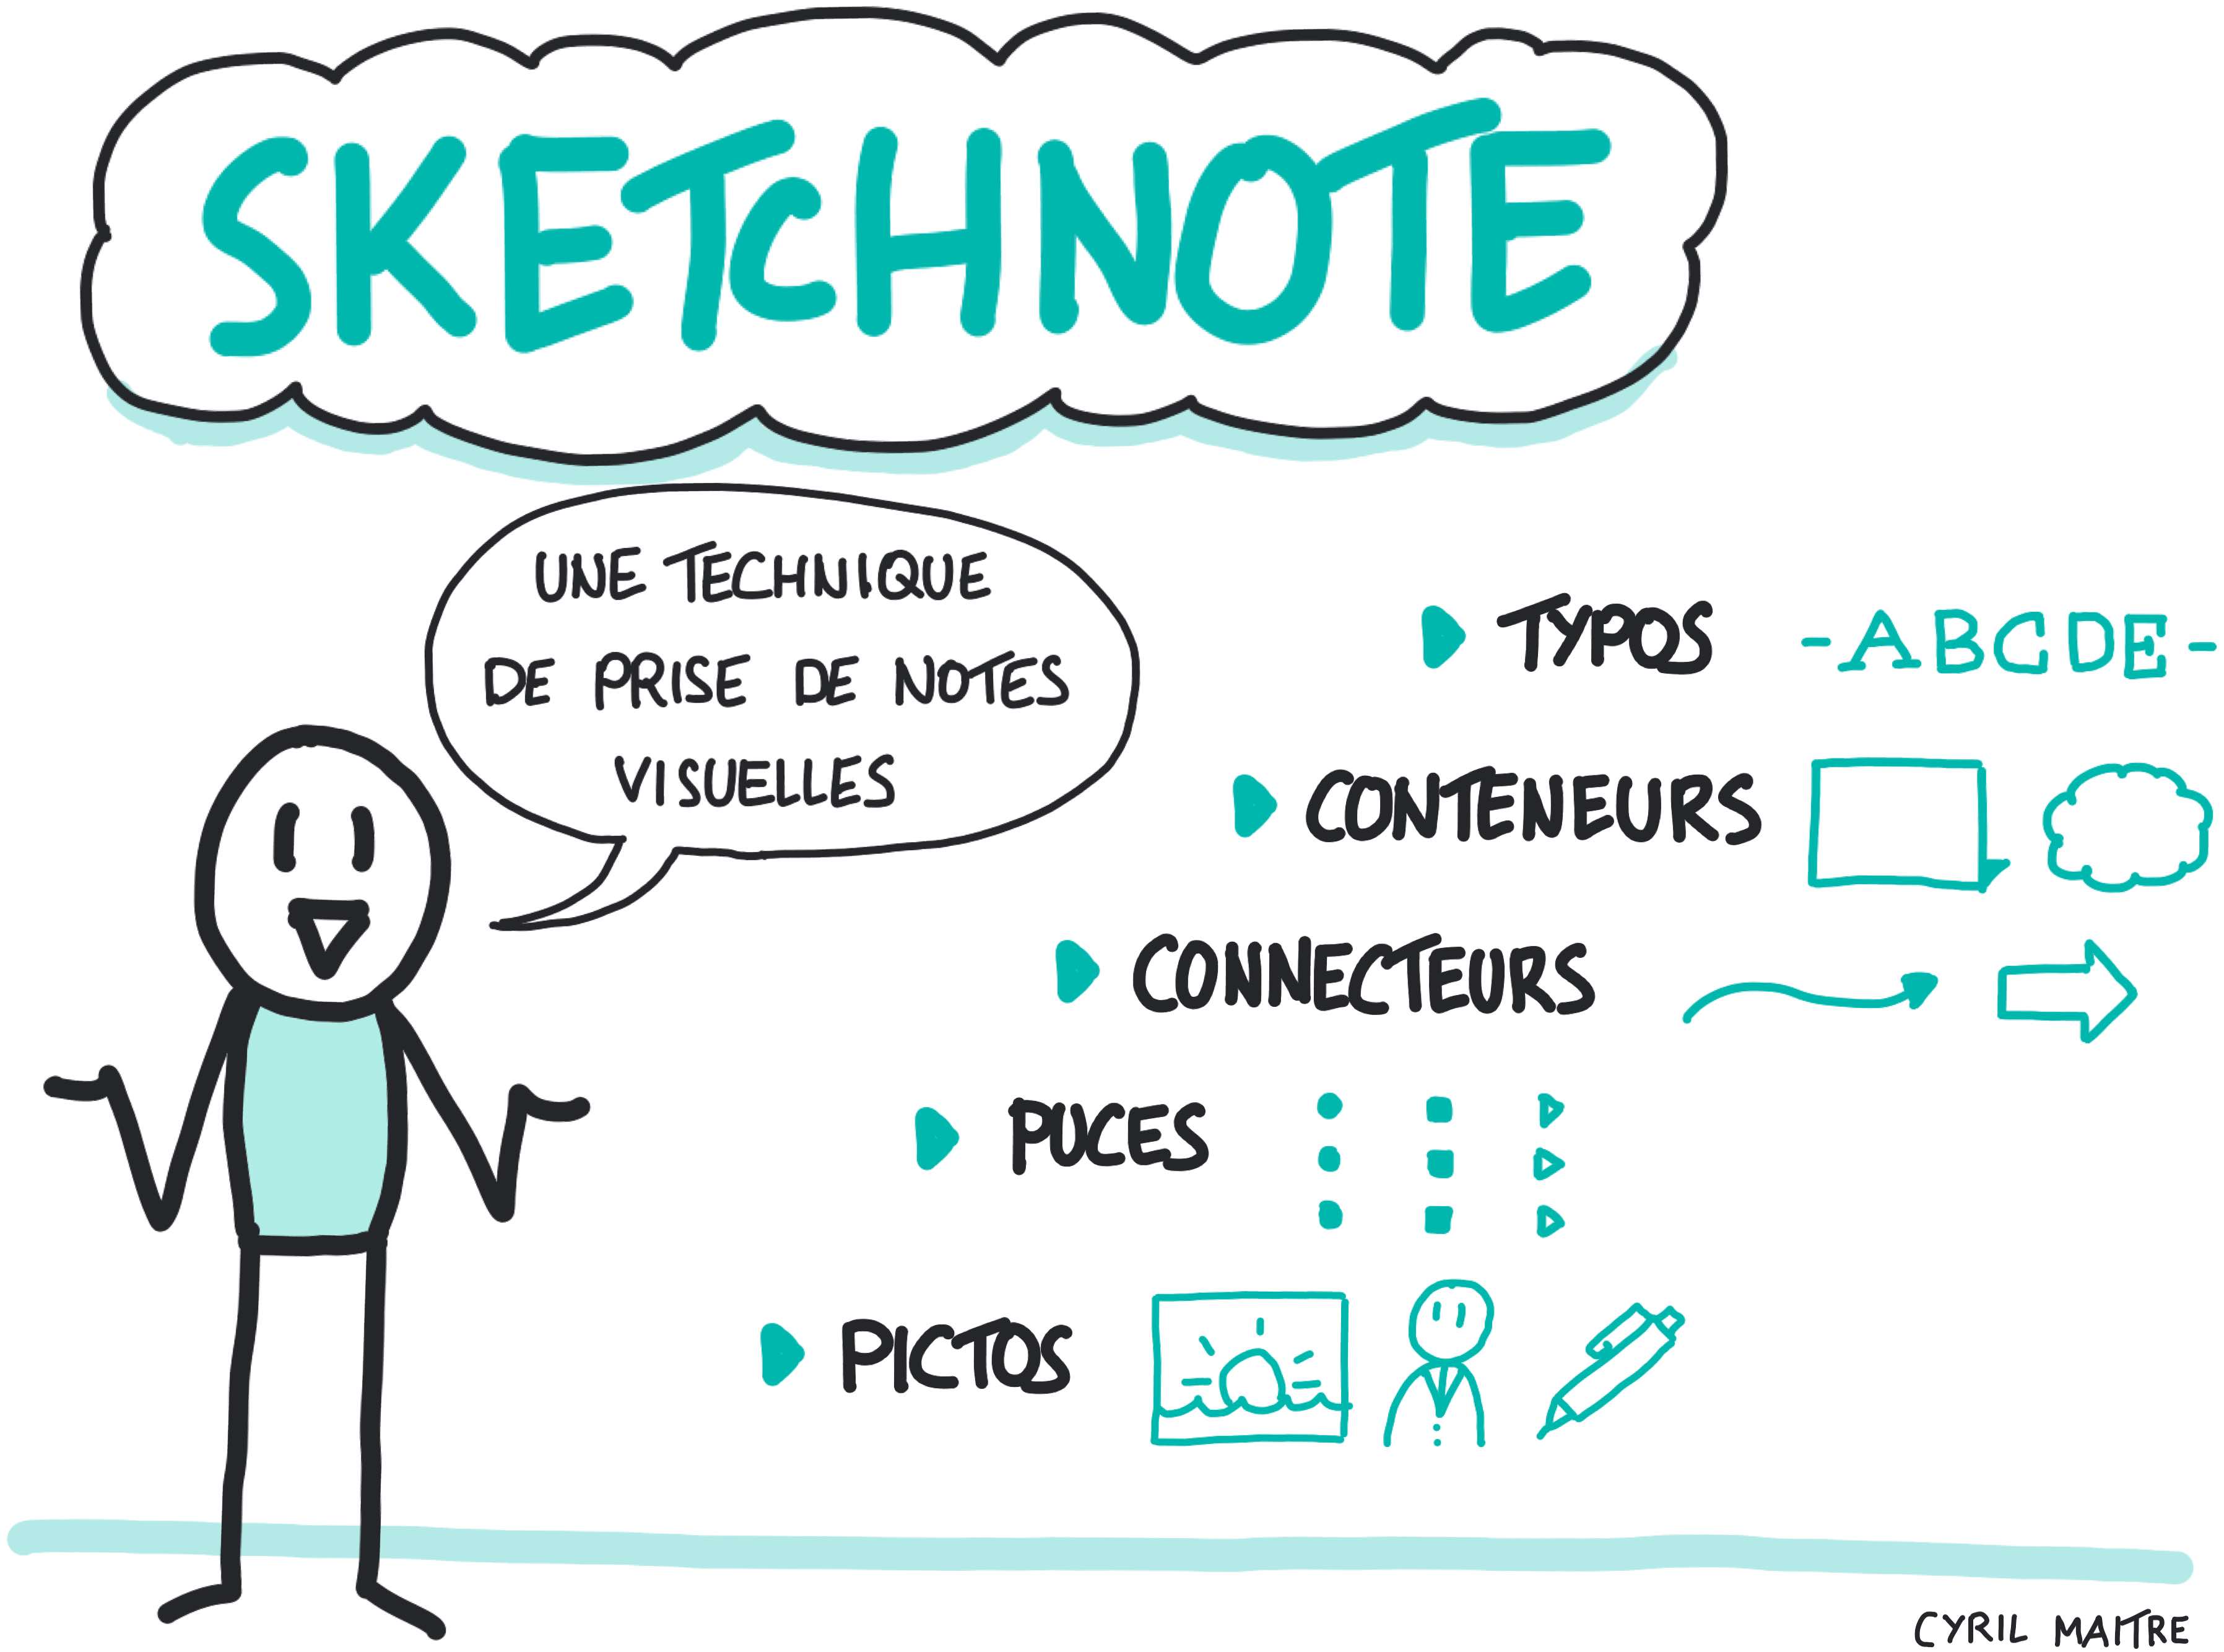 SKETCHNOTE
UNE TECHNIQUE
DE PRISE DE NOTES
VISUELLES
TYPOS -ABCDE-
CONTENEURS
CONNECTEURS
PUCES
PICTOS
CYRIL MAITRE